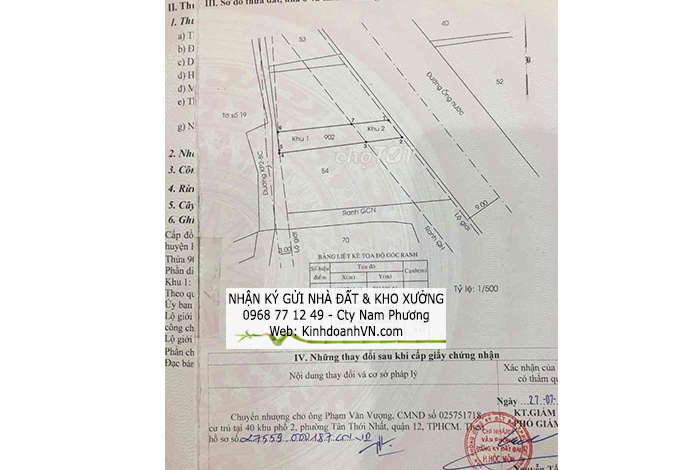 II. Thử
III. Sơ đồ thửa đất, nhà ở và
1. Thử
a) T
b) Đ
c) D
d) H
đ) M
e) Th
g) N
2. Nhà
3. Côn
4. Rừn
5. Cây
6. Ghi
Cấp đổ
huyện H
Thửa 90
Phần di
Khu 1:
Theo qu
Ủy ban
Lộ giới
công ch
Lộ giới
Phần ch
Đạc bản
40
53
Đường Ống nước
52
Tờ số 19
7
1
6
Khu 1
902
Khu 2
5
4
3
2
chợTỐT
Đường XP2-6C
54
Ranh GCN
9.00
Lộ giới
Ranh QH
70
8.00
Lộ giới
BẢNG LIỆT KÊ TỌA ĐỘ GÓC RANH
Số hiệu điểm
Tọa độ
X(m)
Y(m)
Cạnh(m)
Tỷ lệ: 1/500
NHẬN KÝ GỬI NHÀ ĐẤT & KHO XƯỞNG
0968 77 12 49 - Cty Nam Phương
Web: KinhdoanhVN.com
IV. Những thay đổi sau khi cấp giấy chứng nhận
Nội dung thay đổi và cơ sở pháp lý
Xác nhận của
có thẩm qu
Ngày 27-07-
KT.GIÁM
PHÓ GIÁM
Chuyển nhượng cho ông Phạm Văn Vượng, CMND số 025751718,
cư trú tại 40 khu phố 2, phường Tân Thới Nhất, quận 12, TPHCM. Theo
hồ sơ số
CHI NHÁNH
VĂN PHÒNG
ĐĂNG KÝ ĐẤT ĐAI
H.HÓC MÔN
Nguyễn Tấ